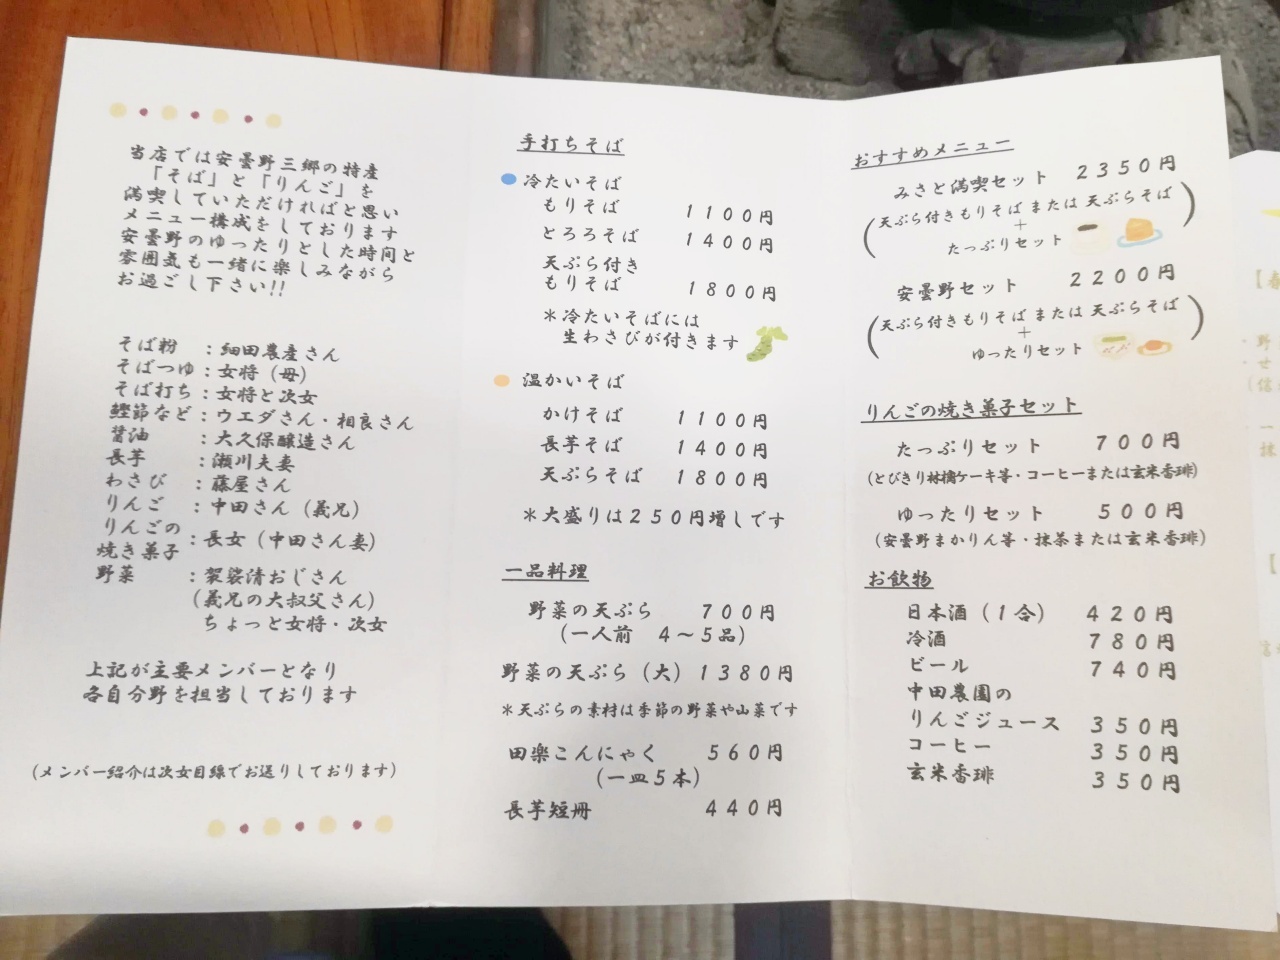 当店では安曇野三郷の特産
「そば」と「りんご」を
満喫していただければと思い
メニュー構成をしております
安曇野のゆったりとした時間と
雰囲気も一緒に楽しみながら
お過ごし下さい!!
そば粉 :細田農産さん
そばつゆ:女将(母)
そば打ち:女将と次女
鰹節など:ウエダさん・相良さん
醤油 :大久保醸造さん
長芋 :瀬川夫妻
わさび :藤屋さん
りんご :中田さん(義兄)
りんごの
焼き菓子:長女(中田さん妻)
野菜 :袈裟清おじさん
(義兄の大叔父さん)
ちょっと女将・次女
上記が主要メンバーとなり
各自分野を担当しております
(メンバー紹介は次女目線でお送りしております)
手打ちそば
冷たいそば
もりそば 1100円
とろろそば 1400円
天ぷら付き
もりそば 1800円
*冷たいそばには
生わさびが付きます
温かいそば
かけそば 1100円
長芋そば 1400円
天ぷらそば 1800円
*大盛りは250円増しです
一品料理
野菜の天ぷら 700円
(一人前 4~5品)
野菜の天ぷら(大) 1380円
*天ぷらの素材は季節の野菜や山菜です
田楽こんにゃく 560円
(一皿5本)
長芋短冊 440円
おすすめメニュー
みさと満喫セット 2350円
(天ぷら付きもりそば または 天ぷらそば
+
たっぷりセット)
安曇野セット 2200円
(天ぷら付きもりそば または 天ぷらそば
+
ゆったりセット)
りんごの焼き菓子セット
たっぷりセット 700円
(とびきり林檎ケーキ等・コーヒーまたは玄米香琲)
ゆったりセット 500円
(安曇野まかりん等・抹茶または玄米香琲)
お飲物
日本酒(1合) 420円
冷酒 780円
ビール 740円
中田農園の
りんごジュース 350円
コーヒー 350円
玄米香琲 350円